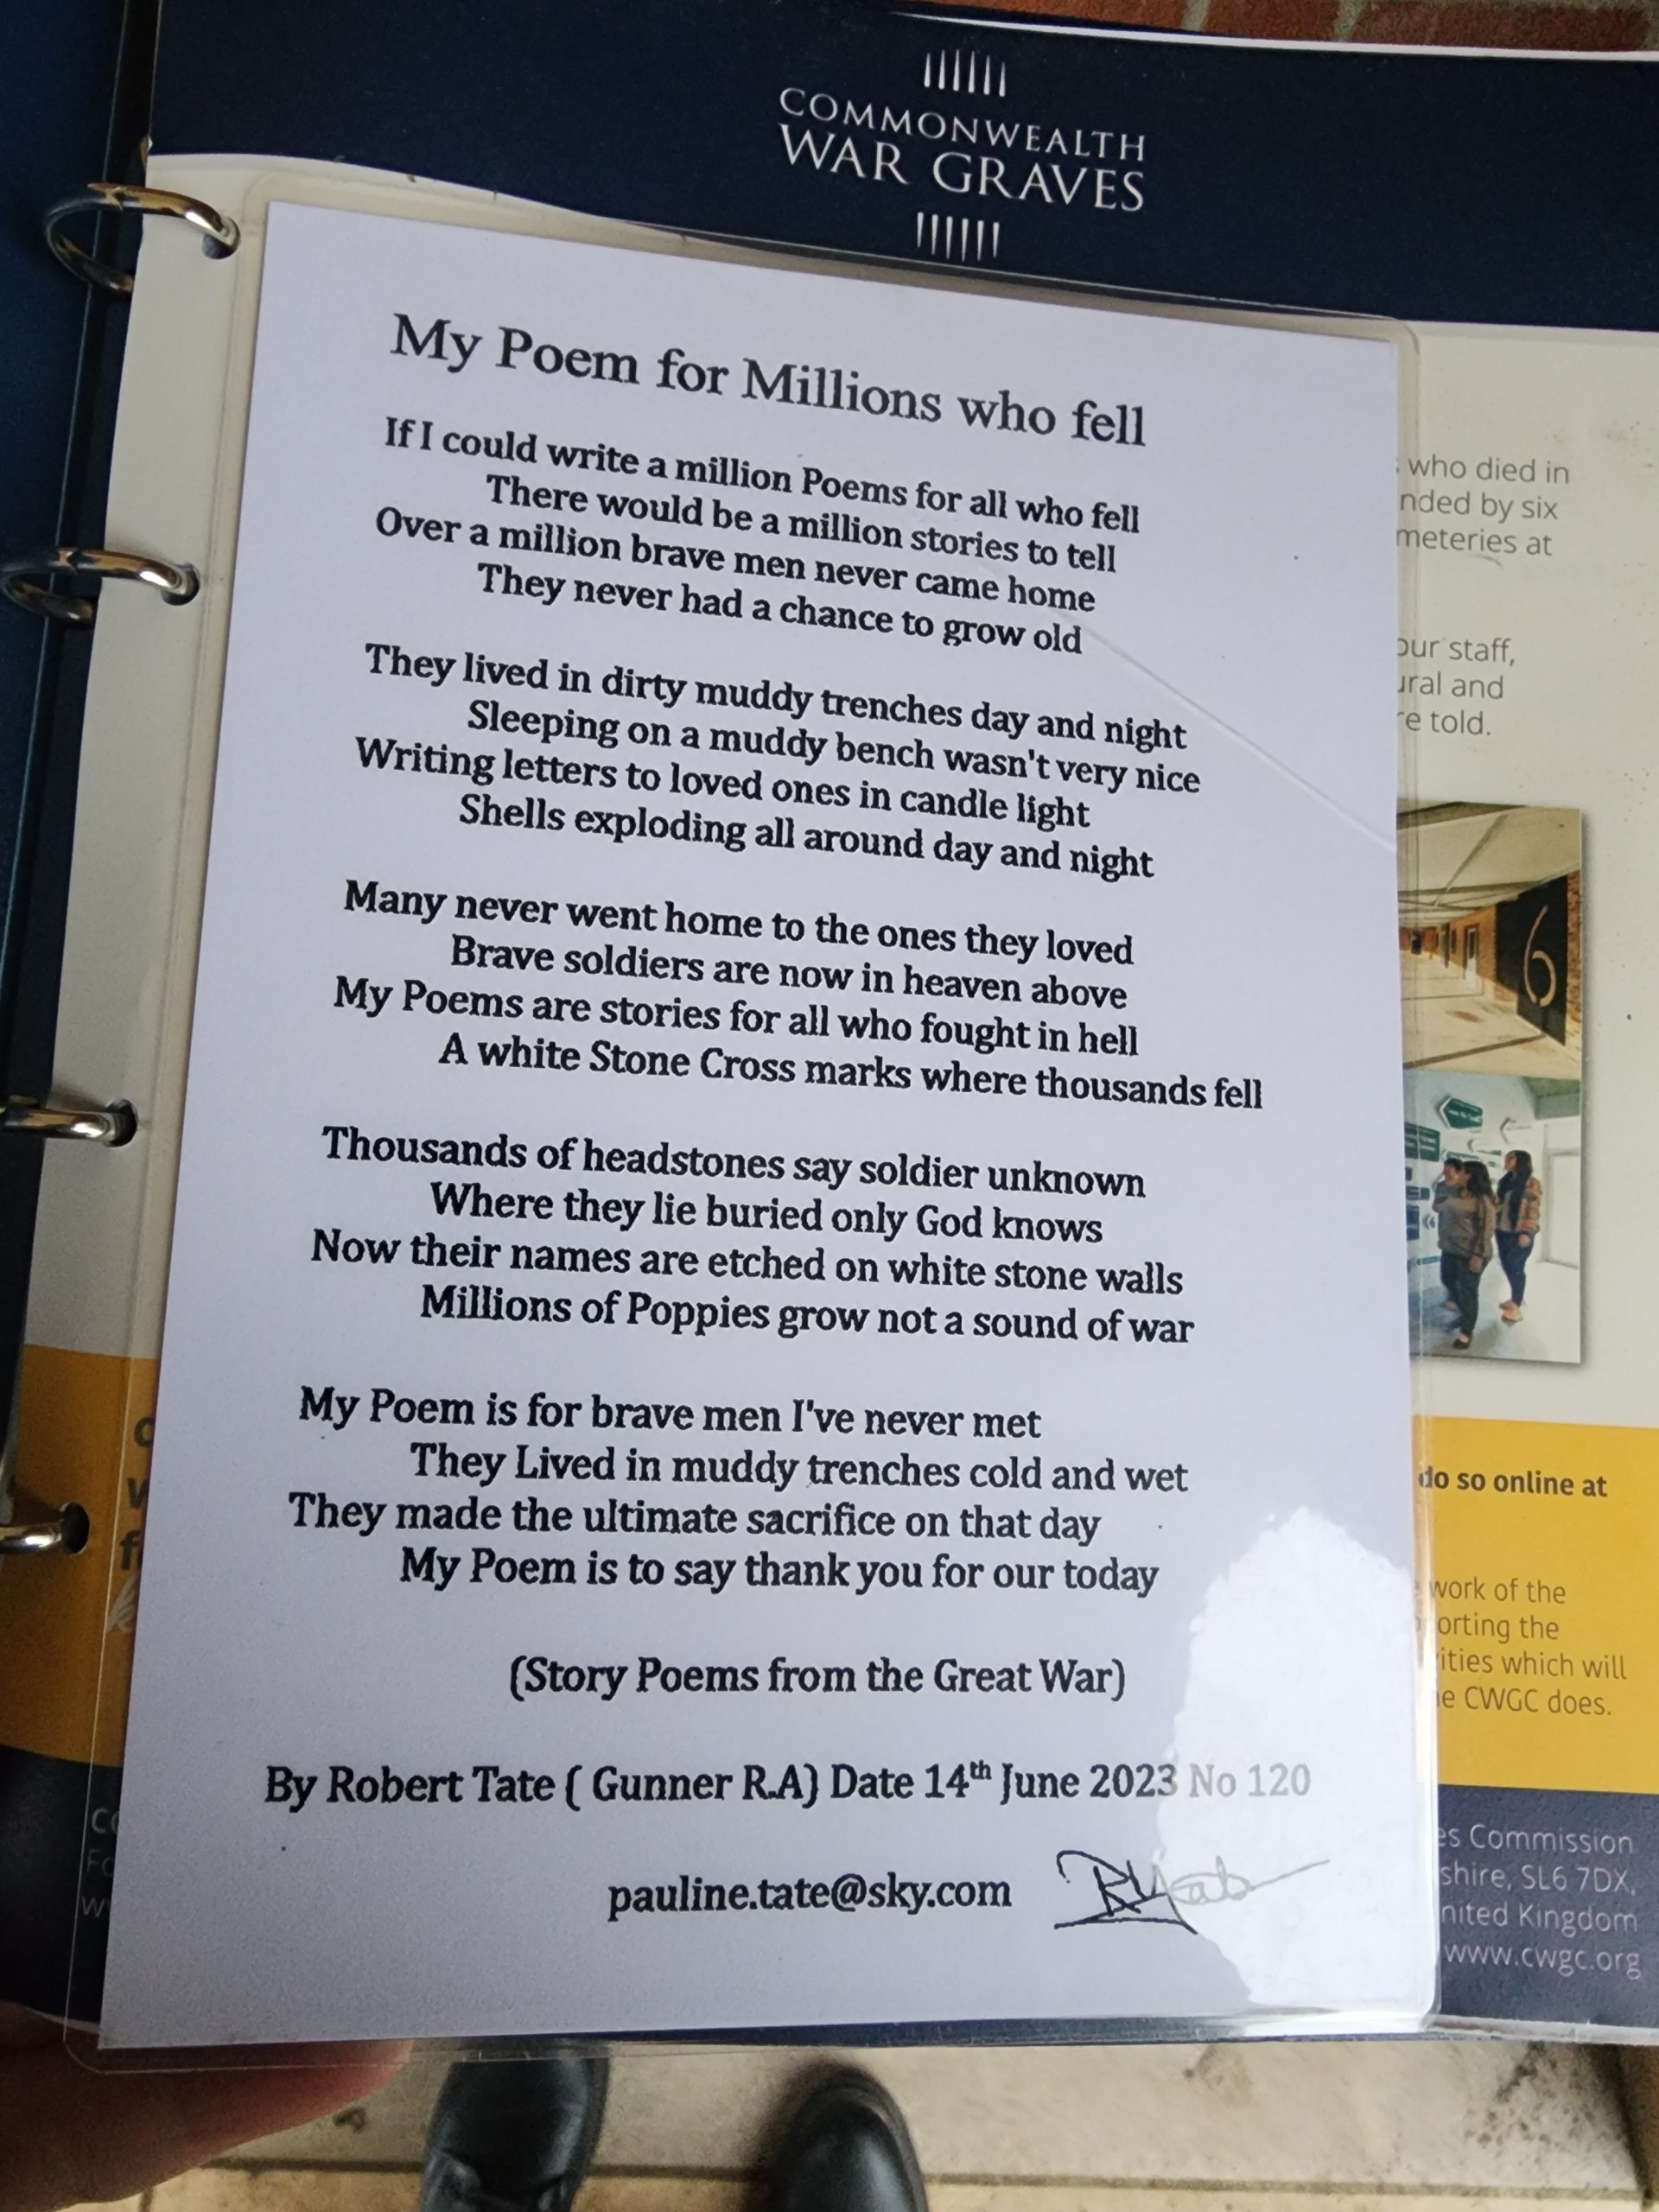 COMMONWEALTH
WAR GRAVES
My Poem for Millions who fell
If I could write a million Poems for all who fell
There would be a million stories to tell
Over a million brave men never came home
They never had a chance to grow old
They lived in dirty muddy trenches day and night
Sleeping on a muddy bench wasn't very nice
Writing letters to loved ones in candle light
Shells exploding all around day and night
Many never went home to the ones they loved
Brave soldiers are now in heaven above
My Poems are stories for all who fought in hell
A white Stone Cross marks where thousands fell
Thousands of headstones say soldier unknown
Where they lie buried only God knows
Now their names are etched on white stone walls
Millions of Poppies grow not a sound of war
My Poem is for brave men I've never met
They Lived in muddy trenches cold and wet
They made the ultimate sacrifice on that day
My Poem is to say thank you for our today
(Story Poems from the Great War)
By Robert Tate ( Gunner R.A) Date 14th June 2023 No 120
pauline.tate@sky.com
who died in
nded by six
meteries at
our staff,
ural and
re told.
6
do so online at
work of the
orting the
ities which will
CWGC does.
es Commission
shire, SL6 7DX,
nited Kingdom
www.cwgc.org